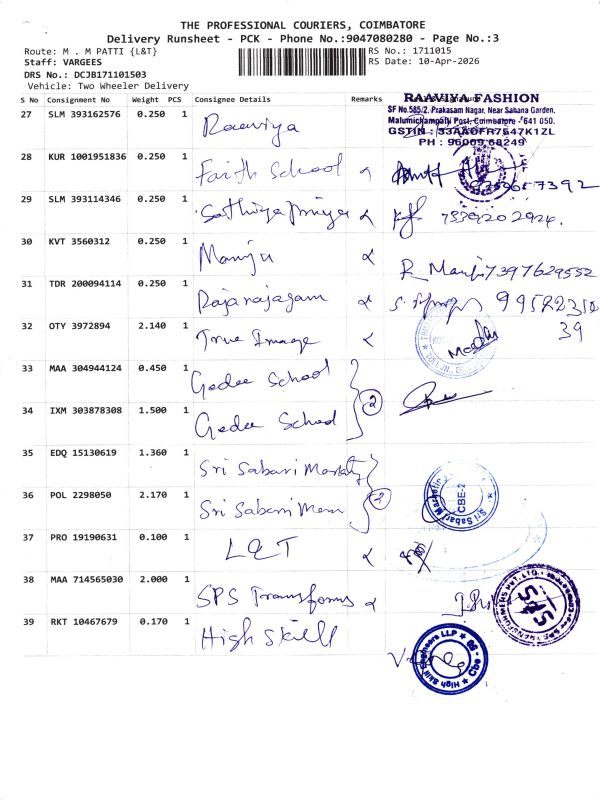 THE PROFESSIONAL COURIERS, COIMBATORE
Delivery Runsheet - PCK - Phone No.:9047080280 - Page No.:3
Route: M . M PATTI {L&T}
RS No.: 1711015
Staff: VARGEES
RS Date: 10-Apr-2026
DRS No.: DCJB171101503
Vehicle: Two Wheeler Delivery
S No Consignment No Weight PCS Consignee Details Remarks
RAAVIYA FASHION
SF No.585/2, Prakasam Nagar, Near Sahana Garden,
Malumichampatti Post, Coimbatore - 641 050.
GSTIN : 33AAOFR7547K1ZL
PH : 96009 68249
27 SLM 393162576 0.250 1 Raaviya
28 KUR 1001951836 0.250 1 Faith School
29 SLM 393114346 0.250 1 Sathiyapriya 7339202924.
30 KVT 3560312 0.250 1 Manju R Manju 7397629552
31 TDR 200094114 0.250 1 Rajarajagam 99522310
39
32 OTY 3972894 2.140 1 True Image
33 MAA 304944124 0.450 1 Gedee School
2
34 IXM 303878308 1.500 1 Gedee School
35 EDQ 15130619 1.360 1 Sri Sabari
2
36 POL 2298050 2.170 1 Sri Sabari
Sri Sabari
CBE-2
37 PRO 19190631 0.100 1 L&T
38 MAA 714565030 2.000 1 SPS Transforms
SPS
39 RKT 10467679 0.170 1 High Skill
High Skill Engineers LLP